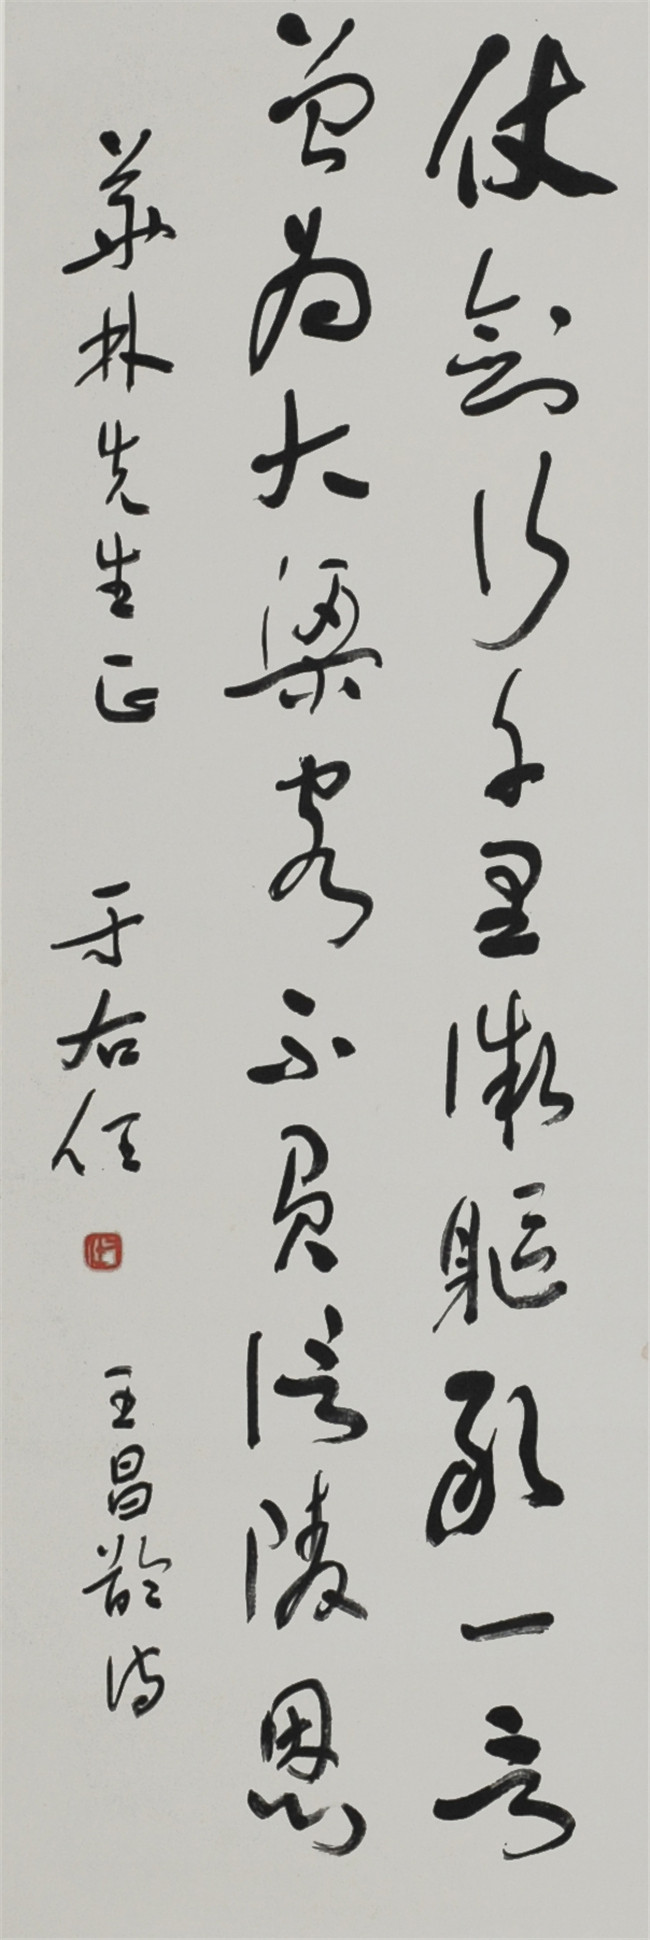 仗劍行千里微軀敢一言
曾為大梁客不負信陵恩
華林先生正 于右任 王昌齡詩